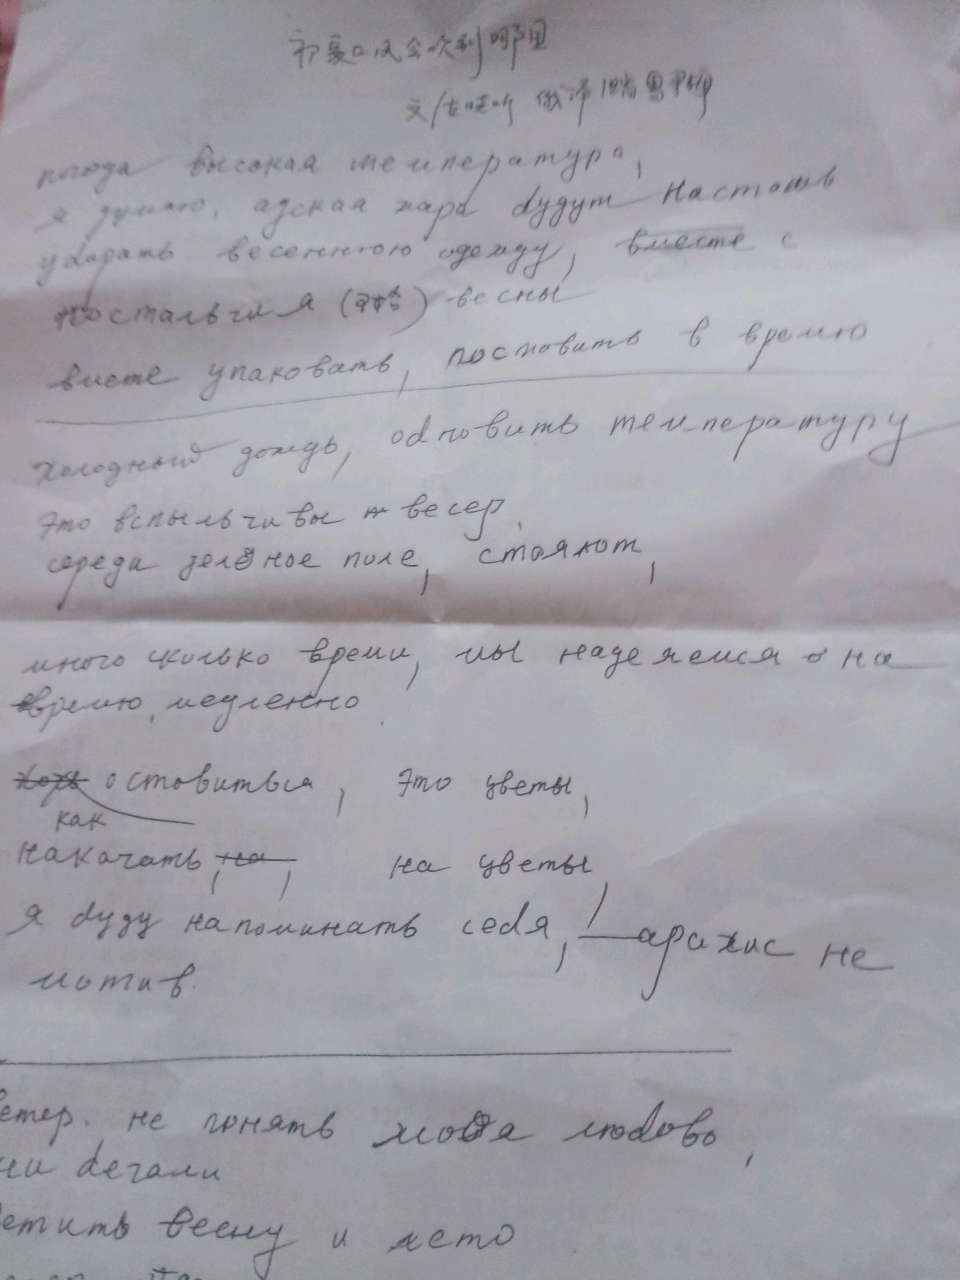 初夏口风会吹到哪里
погода высокая температура,
я думаю, адская жара будут настать
убирать весеннюю одежду, вместе с
ностальгия весны
вместе упаковать, постовить в время
холодный дождь, обновить температуру
это вспыльчивы весер,
середи зелёное поле, стоялот,
много сколько время, мы надеяемся о на
время, медленно
как
оставиться, это цветы,
накачать, на, на цветы,
я буду напоминать себя, арахис не
мотив.
етер. не гонять моя любовь,
ни бегали
етить весну и лето